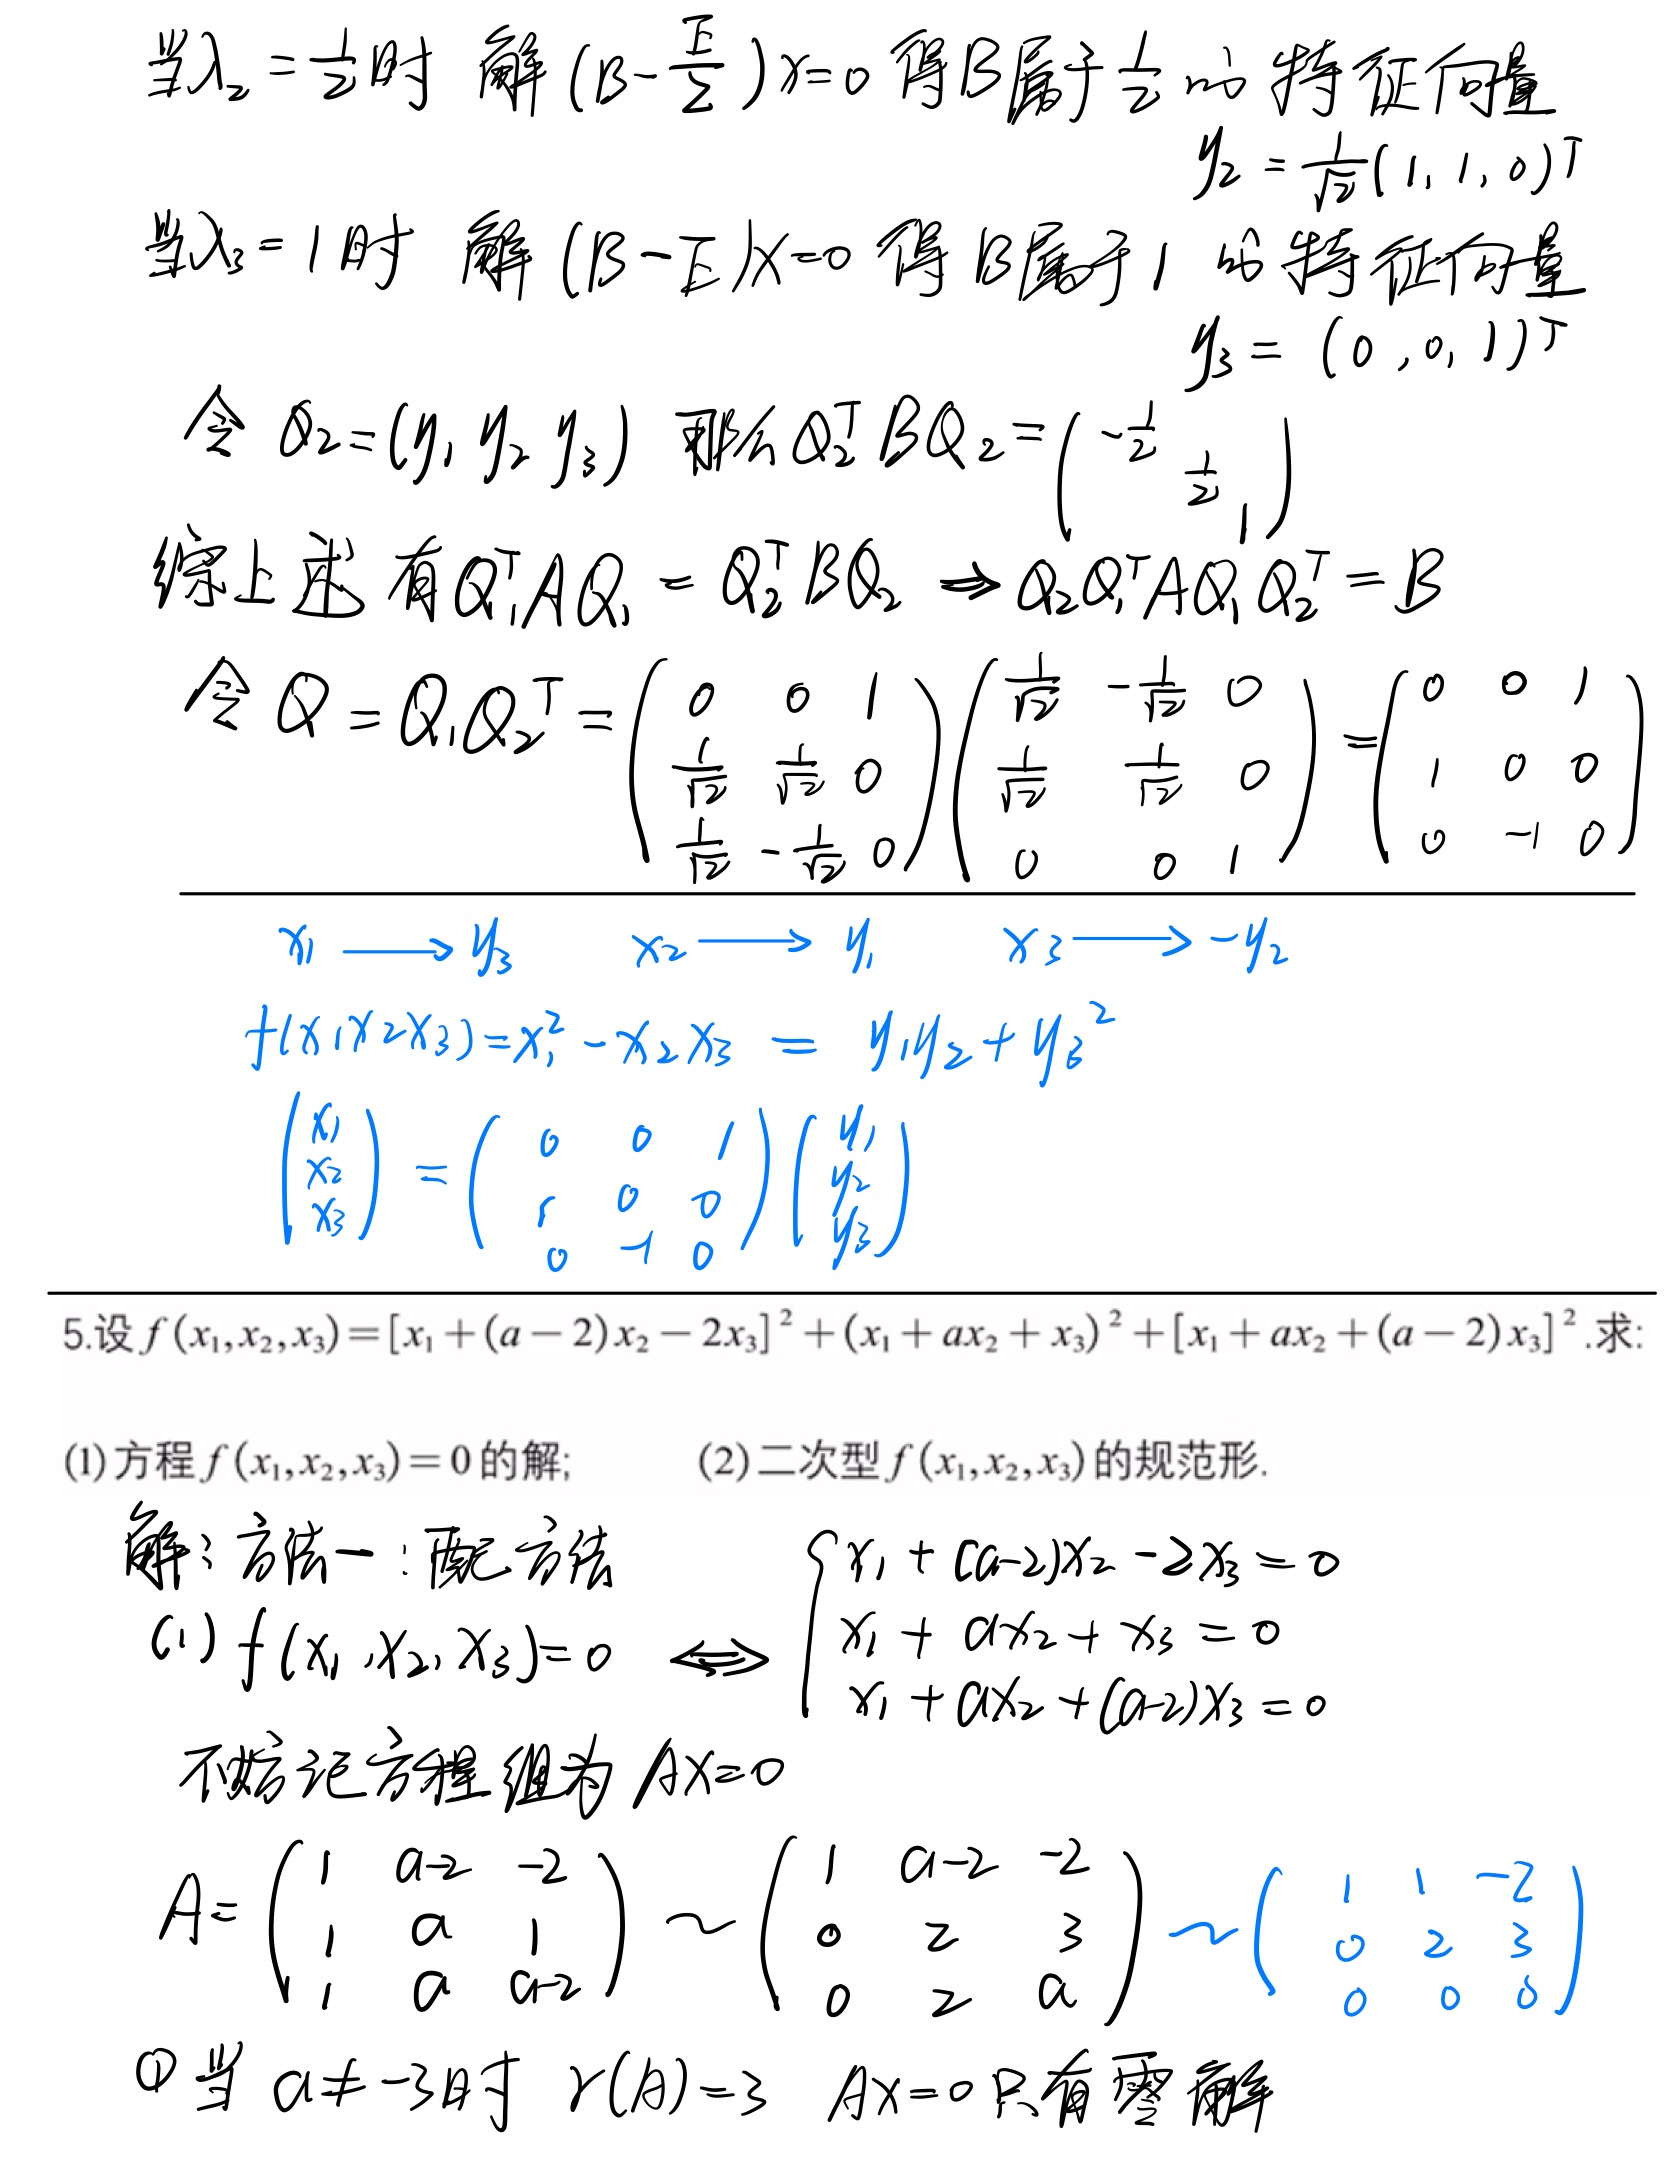 当λ₂=1/2时 解(B-E/2)x=0 得B属于1/2的特征向量
y₂=1/√2(1,1,0)ᵀ
当λ₃=1时 解(B-E)x=0 得B属于1的特征向量
y₃=(0,0,1)ᵀ
令 Q₂=(y₁ y₂ y₃) 那么Q₂ᵀBQ₂=(-1/2 1/2 1)
综上述 有Q₁ᵀAQ₁=Q₂ᵀBQ₂ ⇒ Q₂Q₁ᵀAQ₁Q₂ᵀ=B
令Q=Q₁Q₂ᵀ=(0 0 1; 1/√2 1/√2 0; 1/√2 -1/√2 0)(1/√2 -1/√2 0; 1/√2 1/√2 0; 0 0 1)=(0 0 1; 1 0 0; 0 -1 0)
x₁→y₃ x₂→y₁ x₃→-y₂
f(x₁x₂x₃)=x₁²-x₂x₃=y₁y₂+y₃²
(x₁; x₂; x₃)=(0 0 1; 1 0 0; 0 -1 0)(y₁; y₂; y₃)
5.设f(x₁,x₂,x₃)=[x₁+(a-2)x₂-2x₃]²+(x₁+ax₂+x₃)²+[x₁+ax₂+(a-2)x₃]².求:
(1)方程f(x₁,x₂,x₃)=0的解; (2)二次型f(x₁,x₂,x₃)的规范形.
解:方法一:配方法
(1) f(x₁,x₂,x₃)=0 ⟺ {x₁+(a-2)x₂-2x₃=0
x₁+ax₂+x₃=0
x₁+ax₂+(a-2)x₃=0
不妨记方程组为AX=0
A=(1 a-2 -2; 1 a 1; 1 a a-2)~(1 a-2 -2; 0 2 3; 0 2 a)~(1 1 -2; 0 2 3; 0 0 0)
①当a≠-3时 r(A)=3 AX=0只有零解